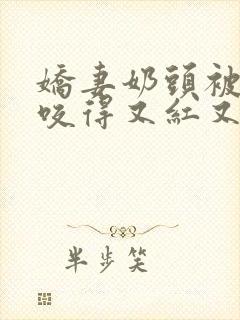 嬌妻奶頭被
咬得又紅又
半步笑